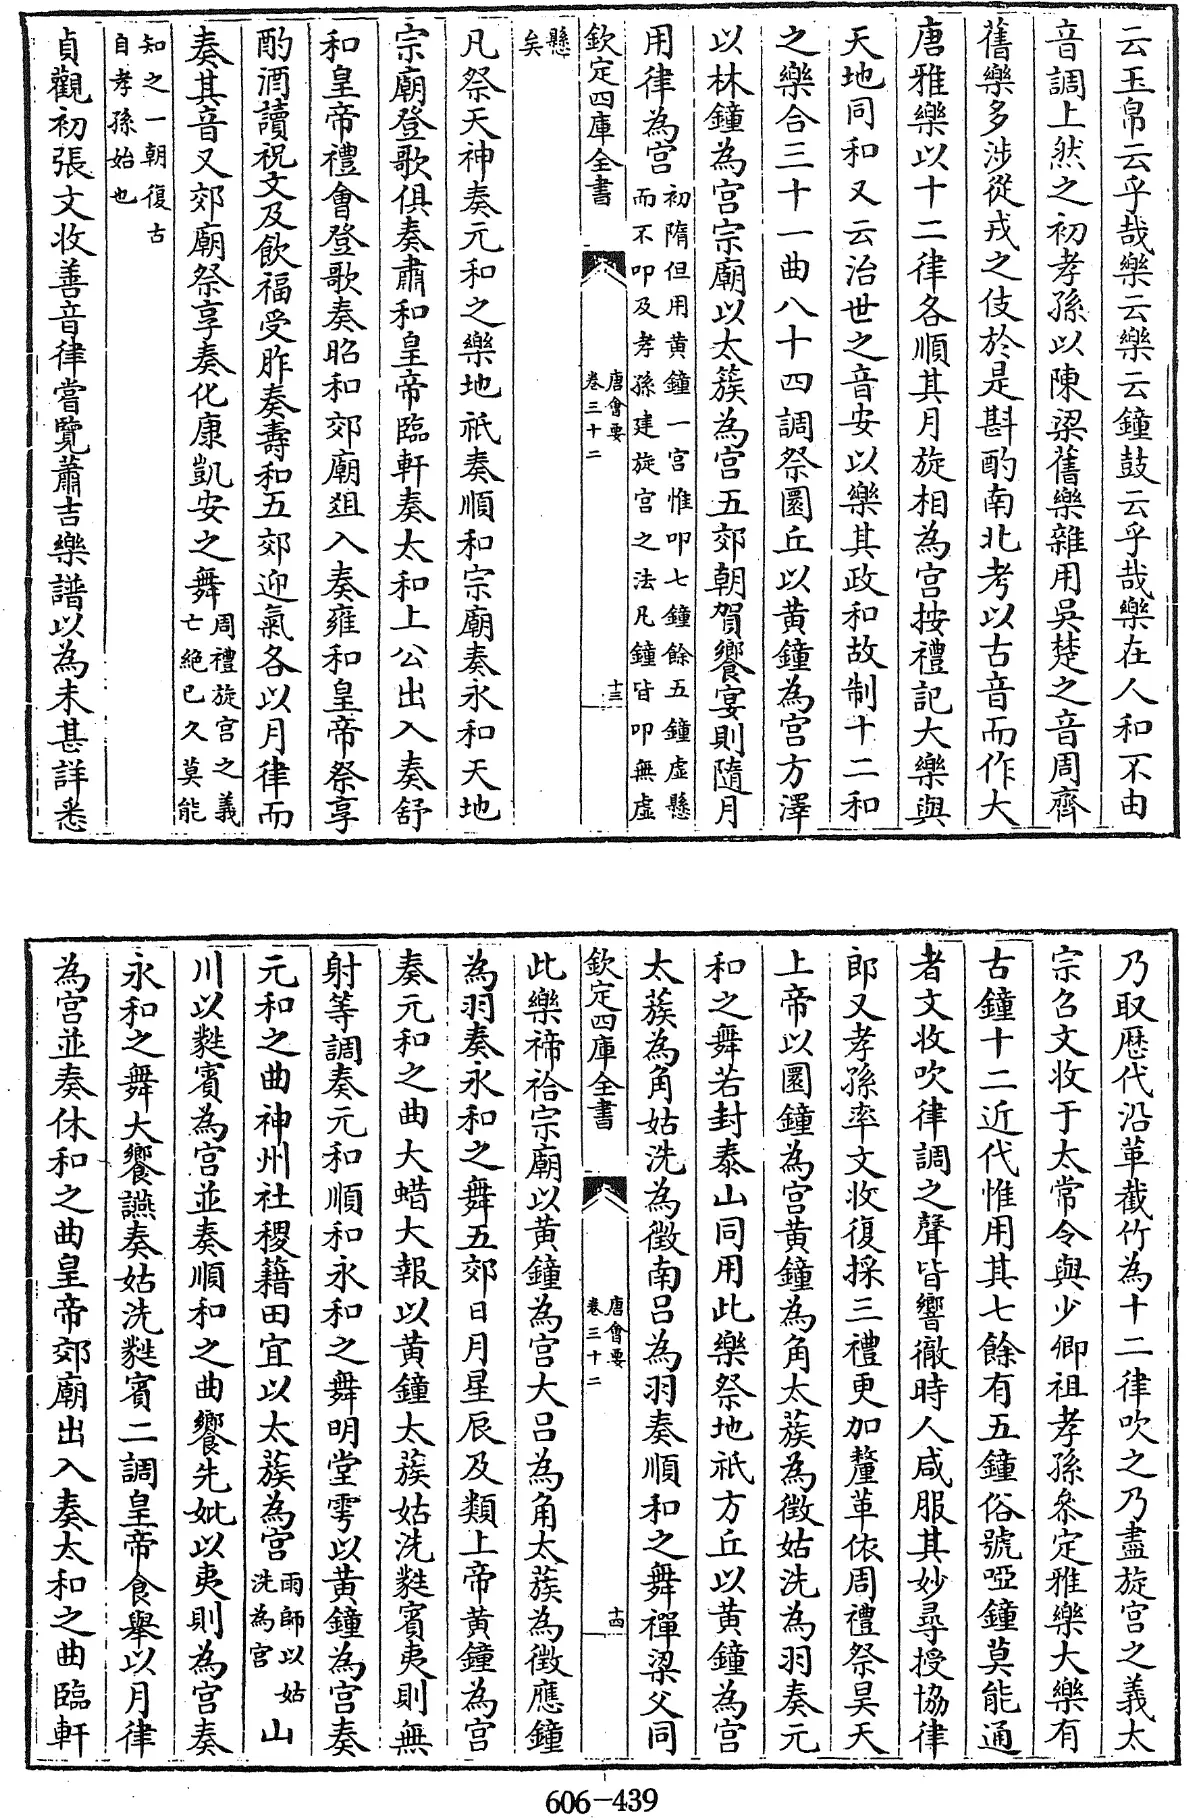 云玉帛云乎哉樂云樂云鐘鼓云乎哉樂在人和不由
音調上然之初孝孫以陳梁舊樂雜用吳楚之音周齊
舊樂多涉從戎之伎於是斟酌南北考以古音而作大
唐雅樂以十二律各順其月旋相為宮按禮記大樂與
天地同和又云治世之音安以樂其政和故制十二和
之樂合三十一曲八十四調祭圜丘以黄鐘為宮方澤
以林鐘為宮宗廟以太簇為宮五郊朝賀饗宴則隨月
用律為宮初隋但用黄鐘一宮惟叩七鐘餘五鐘虛懸
而不叩及孝孫建旋宮之法凡鐘皆叩無虛
欽定四庫全書
唐會要
卷三十二
十三
懸
矣
凡祭天神奏元和之樂地祇奏順和宗廟奏永和天地
宗廟登歌俱奏肅和皇帝臨軒奏太和上公出入奏舒
和皇帝禮會登歌奏昭和郊廟爼入奏雍和皇帝祭享
酌酒讀祝文及飲福受胙奏壽和五郊迎氣各以月律而
奏其音又郊廟祭享奏化康凱安之舞周禮旋宮之義
亡絕已久莫能
知之一朝復古
自孝孫始也
貞觀初張文收善音律嘗覽蕭吉樂譜以為未甚詳悉
乃取歴代沿革截竹為十二律吹之乃盡旋宮之義太
宗召文收于太常令與少卿祖孝孫參定雅樂大樂有
古鐘十二近代惟用其七餘有五鐘俗號啞鐘莫能通
者文收吹律調之聲皆響徹時人咸服其妙尋授協律
郎又孝孫率文收復採三禮更加釐革依周禮祭昊天
上帝以圜鐘為宮黄鐘為角太蔟為徵姑洗為羽奏元
和之舞若封泰山同用此樂祭地祇方丘以黄鐘為宮
太蔟為角姑洗為徵南呂為羽奏順和之舞禪梁父同
欽定四庫全書
唐會要
卷三十二
十四
此樂禘祫宗廟以黄鐘為宮大呂為角太蔟為徵應鐘
為羽奏永和之舞五郊日月星辰及類上帝黄鐘為宮
奏元和之曲大蜡大報以黄鐘太蔟姑洗蕤賓夷則無
射等調奏元和順和永和之舞明堂雩以黄鐘為宮奏
元和之曲神州社稷籍田宜以太蔟為宮雨師以姑
洗為宮山
川以蕤賓為宮並奏順和之曲饗先妣以夷則為宮奏
永和之舞大饗讌奏姑洗蕤賓二調皇帝食舉以月律
為宮並奏休和之曲皇帝郊廟出入奏太和之曲臨軒
606-439